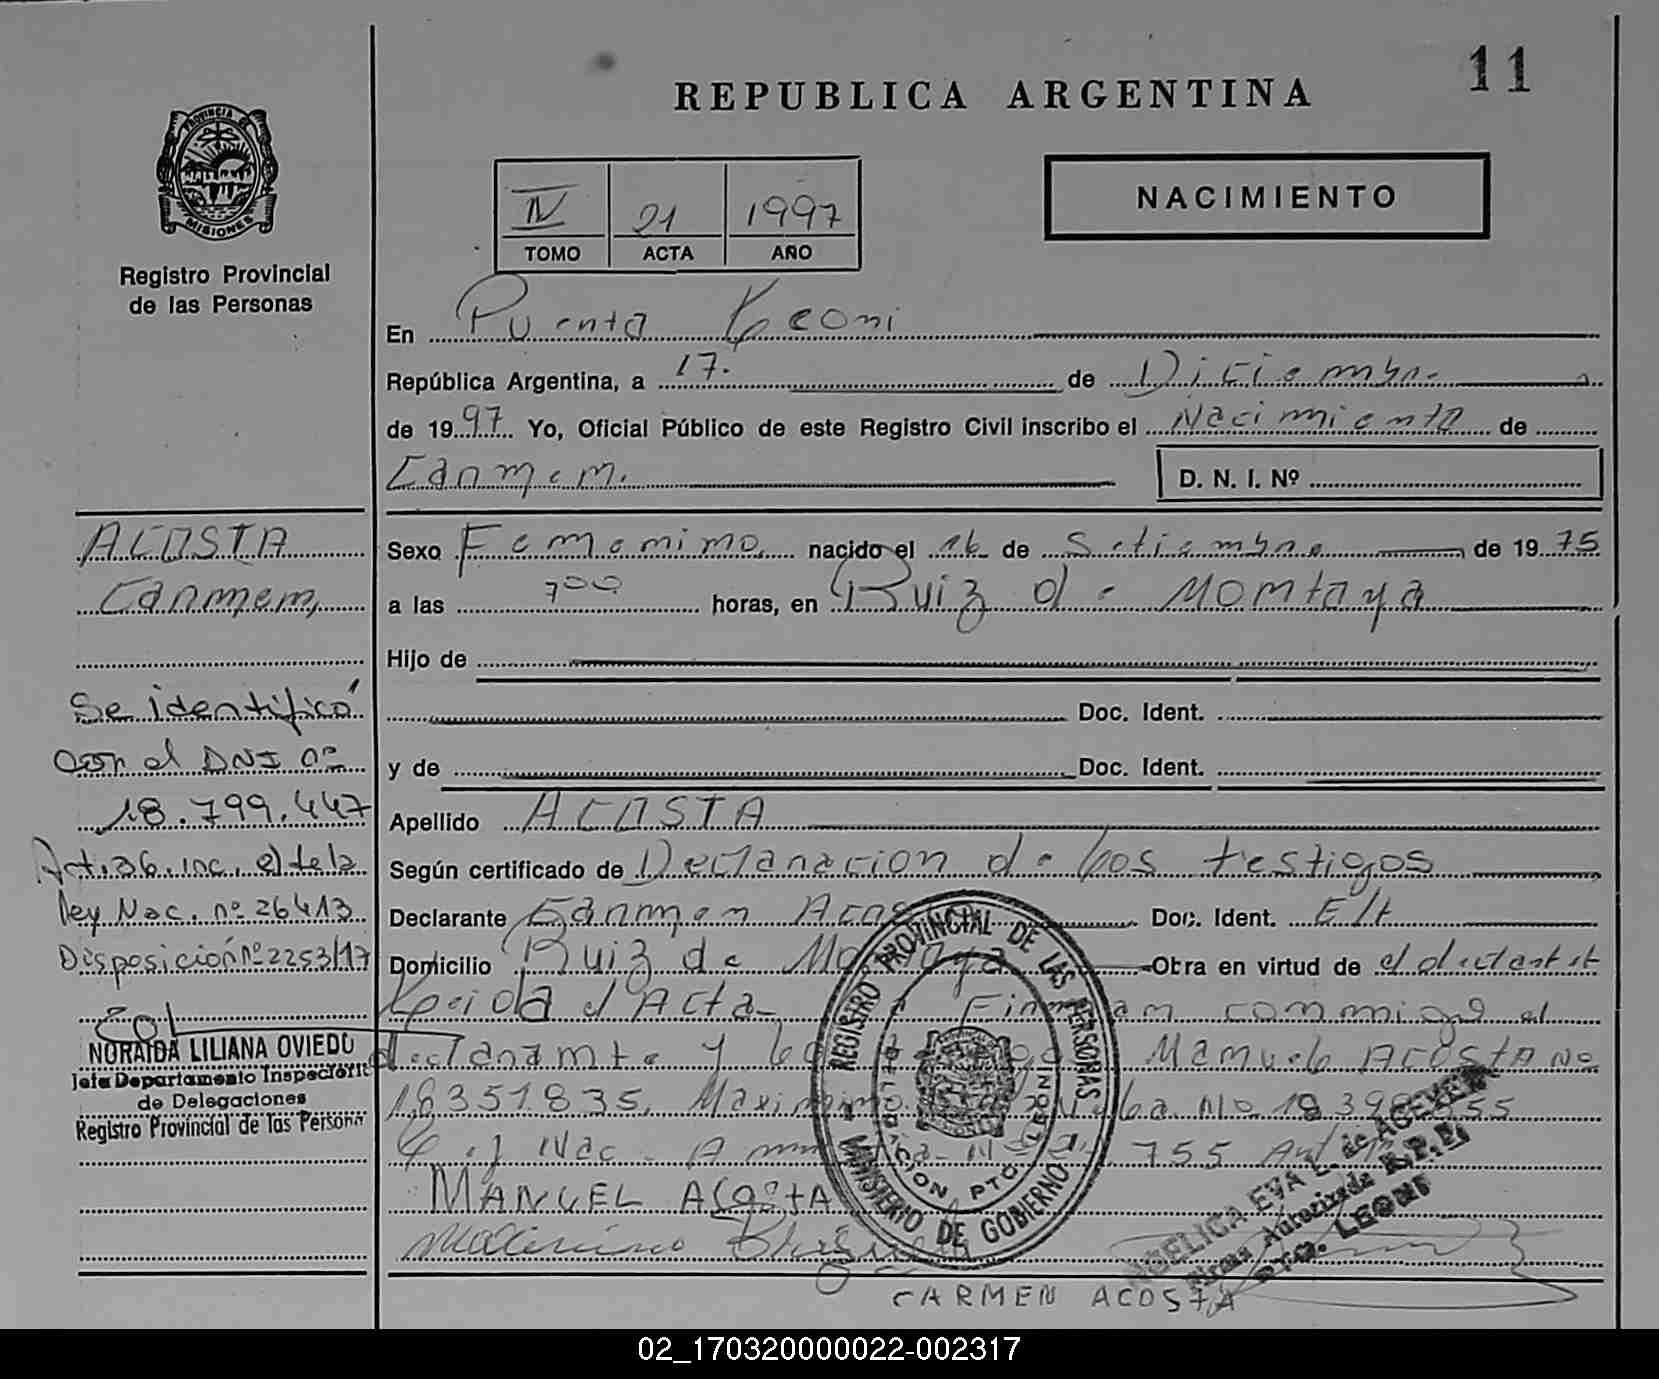 11
REPUBLICA ARGENTINA
PROVINCIA DE
MISIONES
Registro Provincial
de las Personas
IV 21 1997
TOMO ACTA AÑO
NACIMIENTO
En Puerto Leoni
República Argentina, a 17. de Diciembre
de 1997 Yo, Oficial Público de este Registro Civil inscribo el Nacimiento de
Carmem. D. N. I. Nº
ACOSTA
Carmem,
Sexo Femenino nacido el 16 de Setiembre de 1975
a las 700 horas, en Ruiz de Montoya
Hijo de
Doc. Ident.
y de Doc. Ident.
Se identificó
con el DNI nº
18.799.447
Art. 36. inc. e) de la
Ley Nac. nº 26413
Disposición nº 2253/17
NORAIDA LILIANA OVIEDO
Jefa Departamento Inspectoría
de Delegaciones
Registro Provincial de las Personas
Apellido ACOSTA
Según certificado de Declaracion de los testigos
Declarante Carmen Acosta Doc. Ident. E/t
Domicilio Ruiz de Montoya Obra en virtud de
Leida el Acta Firman conmigo el
declarante y Manuel ACOSTA No
18351835, No 18398355
Nac. 755
MANUEL ACOSTA
CARMEN ACOSTA
REGISTRO PROVINCIAL DE LAS PERSONAS
MINISTERIO DE GOBIERNO
DELEGACION PTO. LEONI
ANGELICA EVA L. de ACEVEDO
Firma Autorizada R.P.P.
PTO. LEONI
02_170320000022-002317